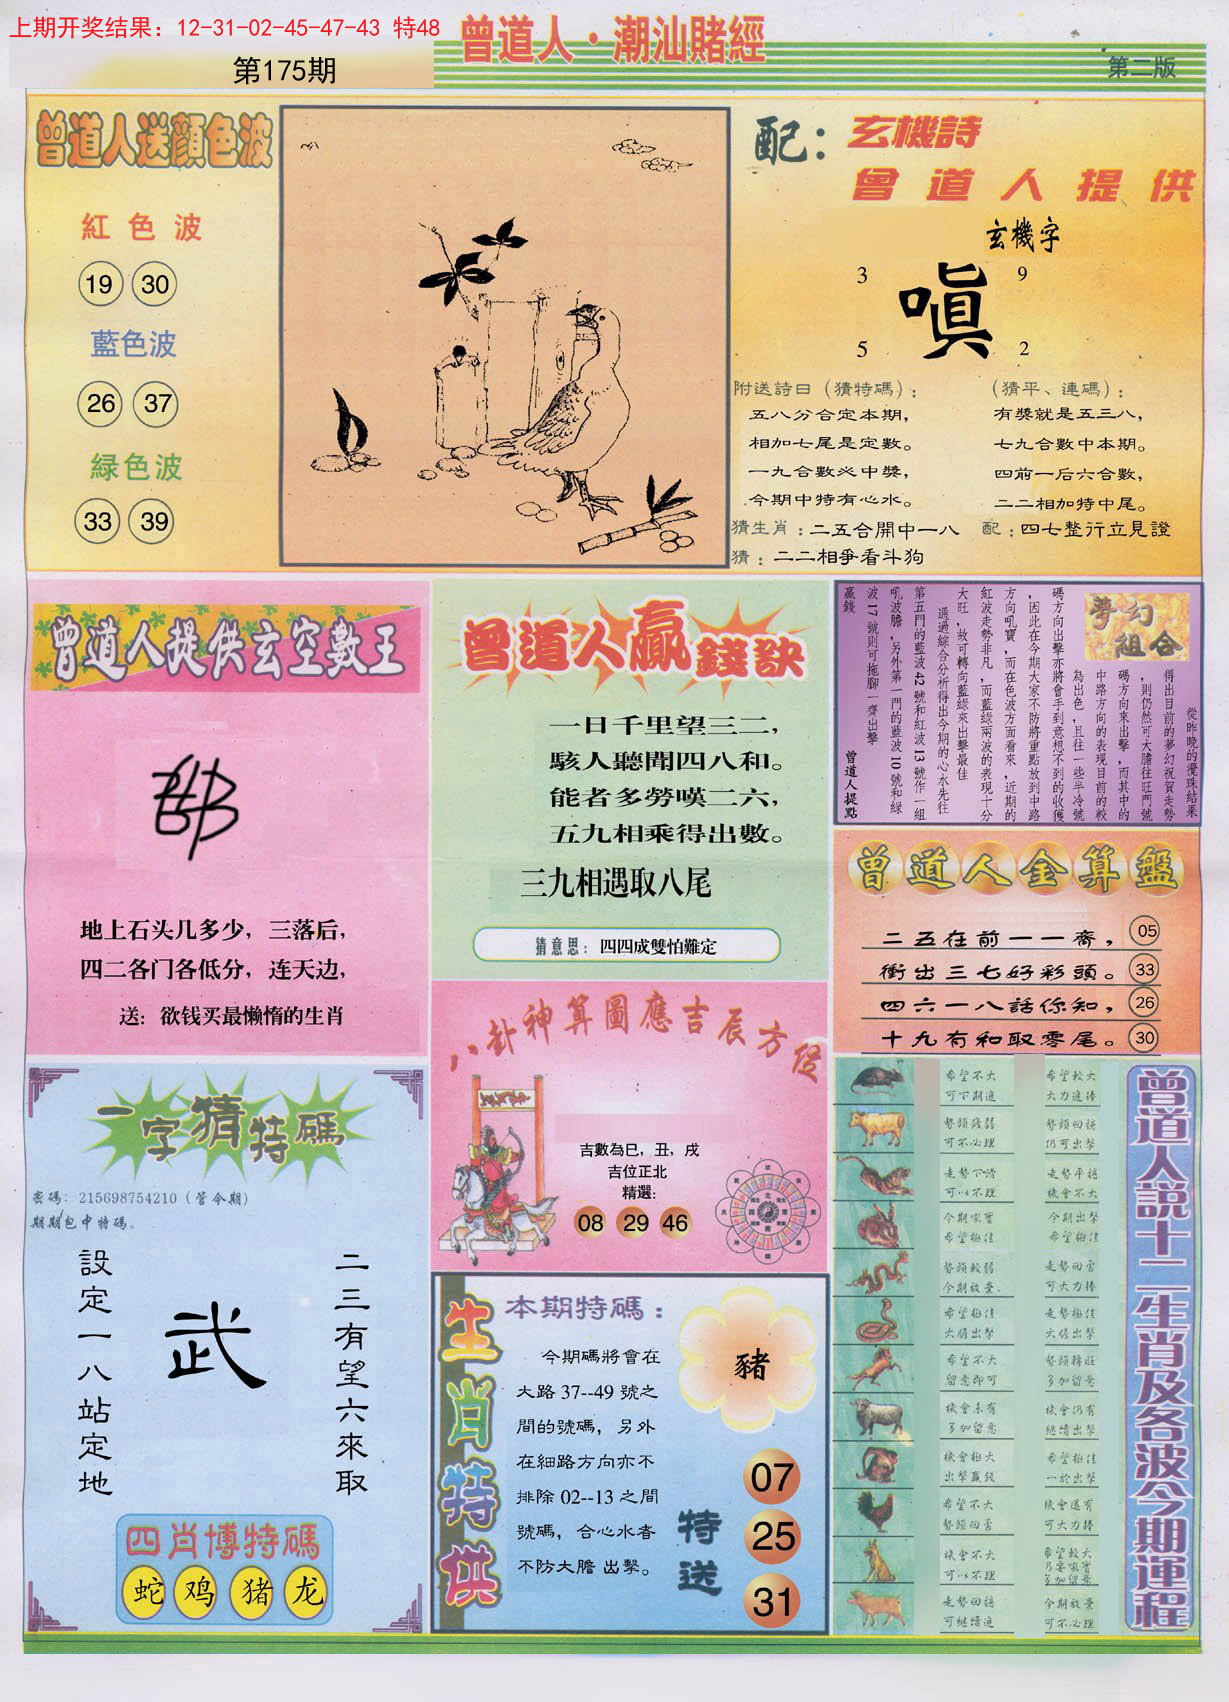 上期开奖结果：12-31-02-45-47-43 特48
第175期
曾道人·潮汕賭經
第二版
曾道人送顏色波
紅色波
19 30
藍色波
26 37
緑色波
33 39
配：玄機詩
曾道人提供
玄機字
3 9
嗔
5 2
附送詩曰（猜特碼）：
五八分合定本期，
相加七尾是定數。
一九合數必中獎，
今期中特有心水。
（猜平、連碼）：
有獎就是五三八，
七九合數中本期。
四前一后六合數，
二二相加特中尾。
猜生肖：二五合開中一八
配：四七整行立見證
猜：二二相爭看斗狗
曾道人提供玄空數王
地上石头几多少，三落后，
四二各门各低分，连天边，
送：欲钱买最懒惰的生肖
曾道人贏錢訣
一日千里望三二，
駭人聽聞四八和。
能者多勞嘆二六，
五九相乘得出數。
三九相遇取八尾
猜意思：四四成雙怕難定
夢幻組合
從昨晚的攪珠結果
得出目前的夢幻祝賀走勢
，則仍然可大膽往旺門號
碼方向來出擊，而其中的
中路方向的表現目前的較
為出色，且往一些半冷號
碼方向出擊亦將會手到意想不到的收獲
，因此在今期大家不防將重點放到中路
方向吼寶，而在色波方面看來，近期的
紅波走勢非凡，而藍綠兩波的表現十分
大旺，故可轉向藍綠來出擊最佳
通過綜合分析得出今期的心水先往
第五門的藍波42號和紅波13號作一組
吼波膽，另外第一門的藍波10號和綠
波17號則可拖腳一齊出擊
贏錢
曾道人提點
曾道人金算盤
二五在前一一齋， 05
衝出三七好彩頭。 33
四六一八話你知， 26
十九有和取零尾。 30
八卦神算圖應吉辰方位
吉數為巳，丑，戌
吉位正北
精選：
08 29 46
一字猜特碼
密碼：215698754210（管令期）
期期包中特碼。
二三有望六來取
武
設定一八站定地
四肖博特碼
蛇 鸡 猪 龙
生肖特供
本期特碼：
今期碼將會在
大路37--49號之
間的號碼，另外
在細路方向亦不
排除02--13之間
號碼，合心水者
不防大膽出擊。
豬
特送
07
25
31
曾道人說十二生肖及各波今期運程
希望不大 希望較大
可下期進 大力進捧
勢頭殘弱 勢頭回穩
可不必理 仍可出擊
走勢下滑 走勢平穩
可以不理 機會不大
今期吼寶 今期出擊
希望極佳 希望極佳
勢頭較弱 走勢回勇
今期放棄 可大力捧
希望極佳 走勢極佳
大膽出擊 大膽出擊
希望不大 勢頭轉旺
留意即可 多加留意
機會未有 機會仍有
多加留意 繼續出擊
機會極大 希望極佳
出擊贏錢 一於出擊
希望不大 機會還有
勢頭回勇 可大力捧
機會不大 希望較大
可以不理 多加留意
走勢回穩 今期放棄
可繼續進 可不必理